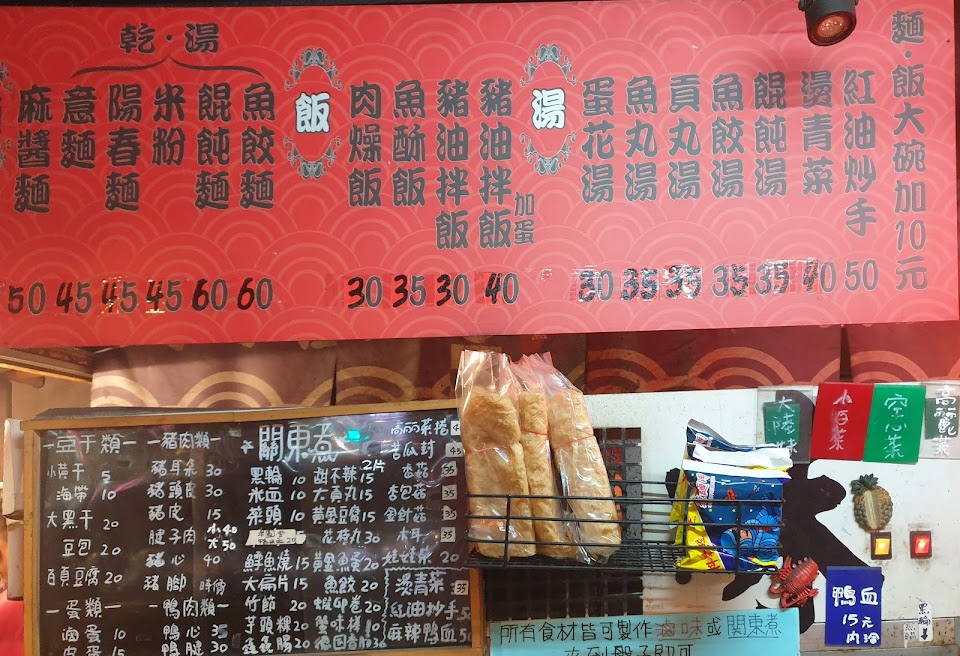 麵·飯大碗加10元
紅油炒手 50
燙青菜 40
餛飩湯 35
魚餃湯 35
貢丸湯 35
魚丸湯 35
蛋花湯 30
湯
豬油拌飯加蛋 40
豬油拌飯 30
魚酥飯 35
肉燥飯 30
飯
乾·湯
魚餃麵 60
餛飩麵 60
米粉 45
陽春麵 45
意麵 45
麻醬麵 50
一豆干類一
小黃干 5
海帶 10
大黑干 20
豆包 20
百頁豆腐 20
一蛋類一
滷蛋 10
皮蛋 15
一豬肉類一
豬耳朵 30
豬頭皮 30
豬皮 15
腱子肉 小40 大50
豬腳 時價
一鴨肉類一
鴨心 35
鴨腱 30
關東煮
黑輪 10
米血 10
菜頭 10
鱈魚燒 15
大扁片 15
竹節 20
芋頭粿 20
甜不辣 2片15
大貢丸 15
黃金豆腐 15
花枝丸 30
黃金魚蛋 20
魚餃 20
蟹味棒 10
德國香腸 30
高麗菜捲
苦瓜封 45
杏菇 35
杏包菇 35
金針菇 35
木耳
娃娃菜 20
燙青菜 35
紅油抄手 50
麻辣鴨血 50
所有食材皆可製作滷味或關東煮
大陸妹
空心菜
高麗菜
鴨血
15元
內冷
黑輪